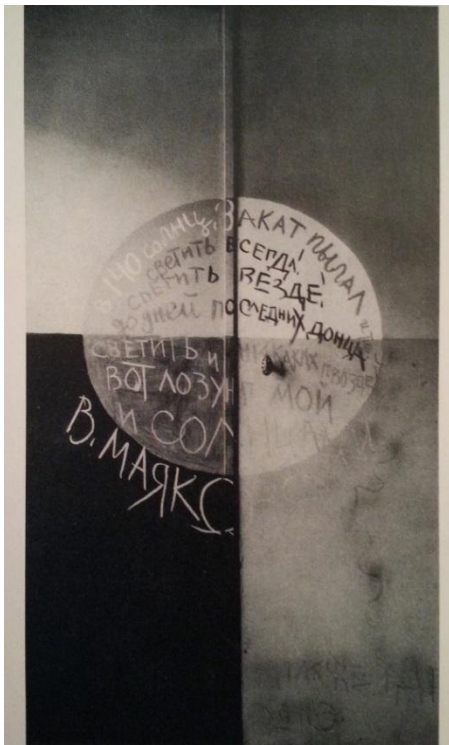 В 140 солнц ЗАКАТ ПЫЛАЛ
СВЕТИТЬ ВСЕГДА!
СВЕТИТЬ ВЕЗДЕ!
ДО ДНЕЙ ПОСЛЕДНИХ ДОНЦА
СВЕТИТЬ И НИКАКИХ ГВОЗДЕ
ВОТ ЛОЗУНГ МОЙ
И СОЛНЦА
В. МАЯКС